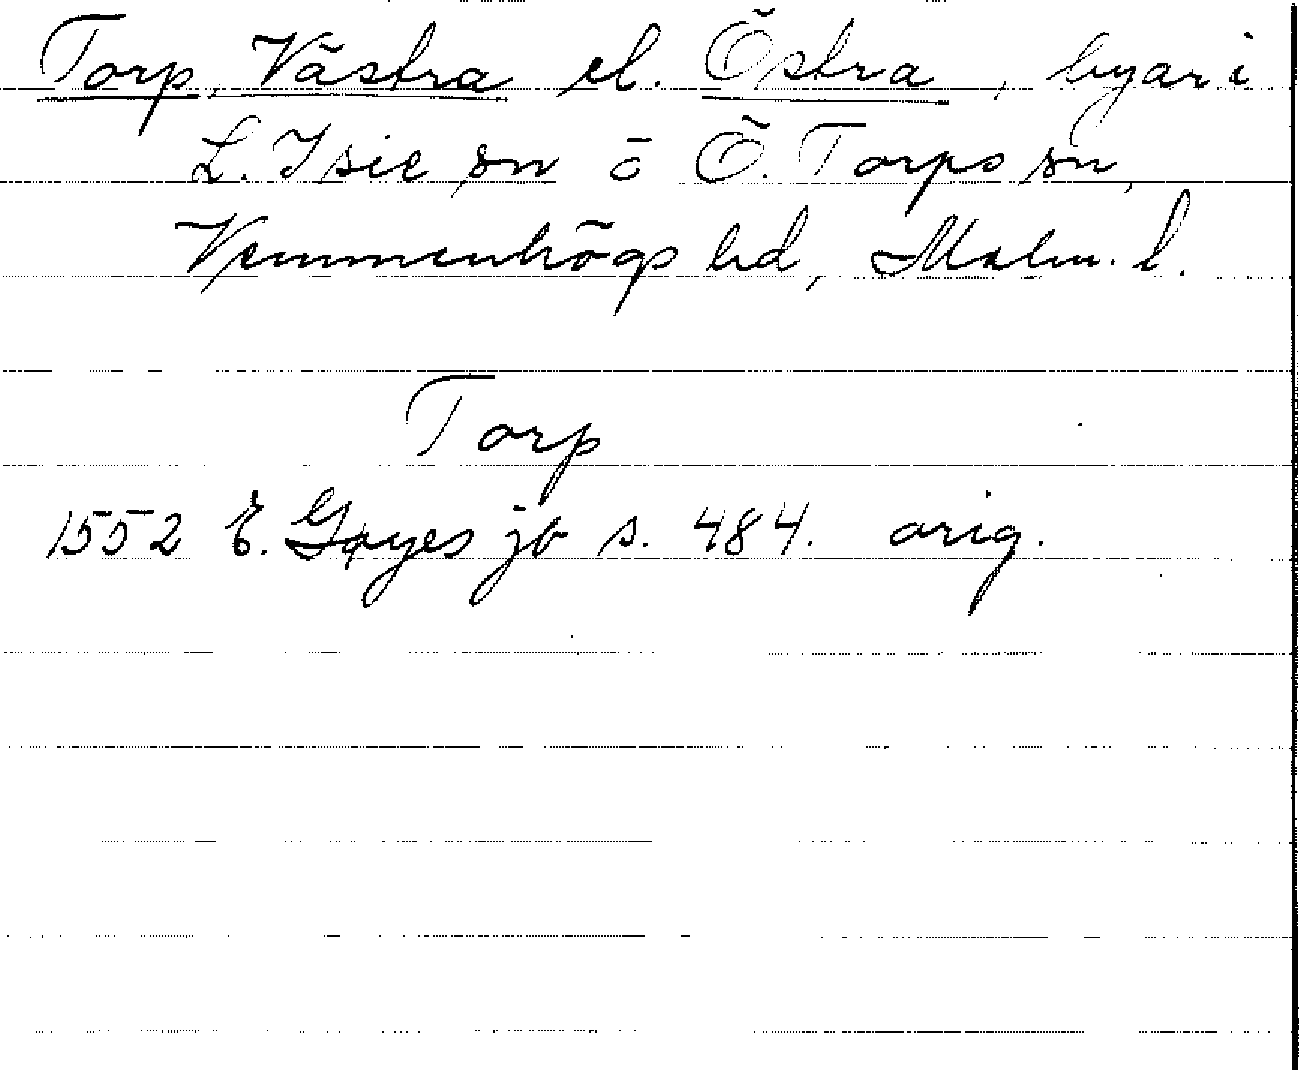 Torp, Västra el. Östra, byar i
L. Isie sn o Ö. Torps sn,
Vemmenhögs hd, Malm. l.
Torp
1552 E. Gøyes jb s. 484. orig.